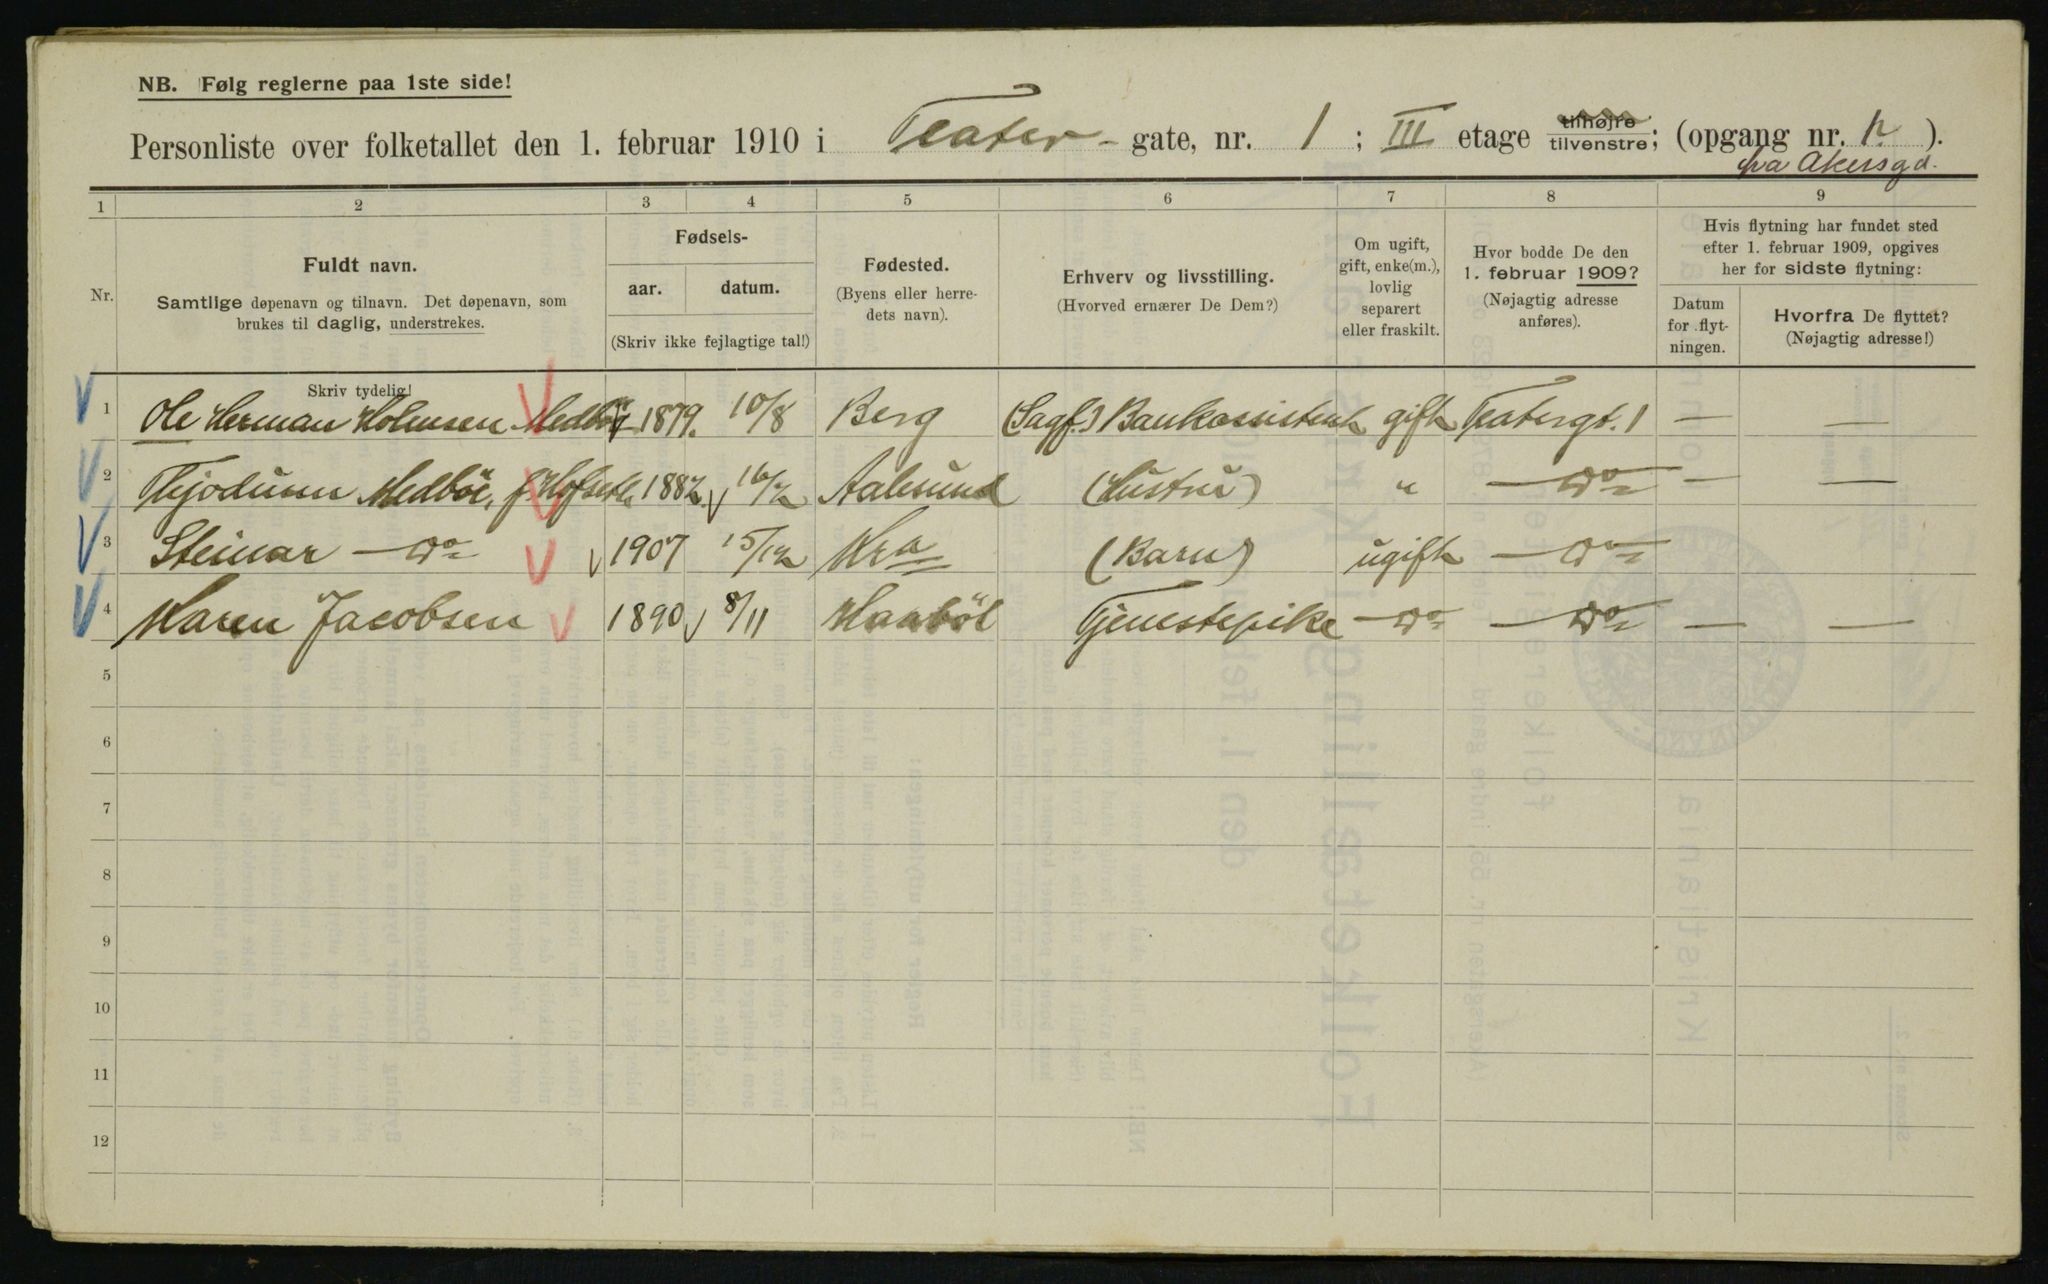 NB. Følg reglerne paa 1ste side!
Personliste over folketallet den 1. februar 1910 i Teater- gate, nr. 1 ; III etage tilhøjre/tilvenstre; (opgang nr. ).
fra Akersgd.
1 2 3 4 5 6 7 8 9
Nr.
Fuldt navn.
Samtlige døpenavn og tilnavn. Det døpenavn, som
brukes til daglig, understrekes.
Fødsels-
aar. datum.
(Skriv ikke fejlagtige tal!)
Fødested.
(Byens eller herre-
dets navn).
Erhverv og livsstilling.
(Hvorved ernærer De Dem?)
Om ugift,
gift, enke(m.),
lovlig
separert
eller fraskilt.
Hvor bodde De den
1. februar 1909?
(Nøjagtig adresse
anføres).
Hvis flytning har fundet sted
efter 1. februar 1909, opgives
her for sidste flytning:
Datum
for flyt-
ningen.
Hvorfra De flyttet?
(Nøjagtig adresse!)
Skriv tydelig!
1 Ole Herman Holmsen Medböe 1879. 10/8 Berg (Sagf.) Bankassistent gift Teatergt. 1 — —
2 Thjodunn Medböe, f. Hofseth 1882 16/2 Aalesund (Hustru) " — Do — — —
3 Steinar — Do 1907 15/12 Kra (Barn) ugift — Do
4 Maren Jacobsen 1890 8/11 Haaböl Tjenestepike — Do — Do — —
5
6
7
8
9
10
11
12